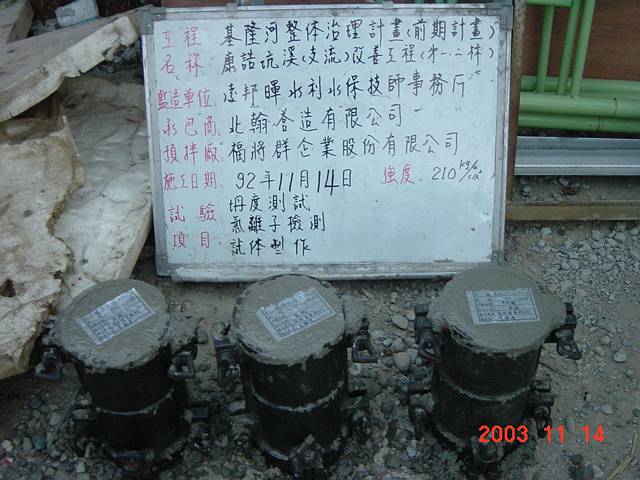 工程 基隆河整体治理計畫(前期計畫)
名称 康誥坑溪(支流)改善工程(
監造單位 邦暉水利水保技師事務所
承包商 北翰營造有限公司
預拌廠 福將群企業股份有限公司
施工日期 92年11月14日 強度 210 kg/cm²
試驗 坍度測試
氯離子檢測
項目: 試体製作
2003 11 14